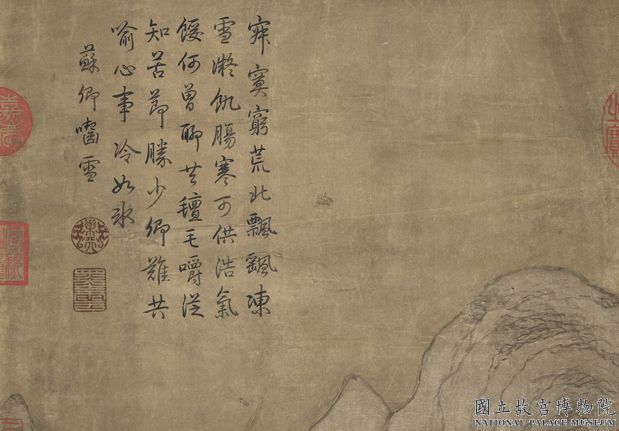 寂寞窮荒北飄颻凍
雪凝飢腸寒可供浩氣
餒何曾聊共氈毛嚼從
知苦節勝少卿難共
喻心事冷如冰
蘇卿嚙雪
國立故宮博物院
NATIONAL PALACE MUSEUM